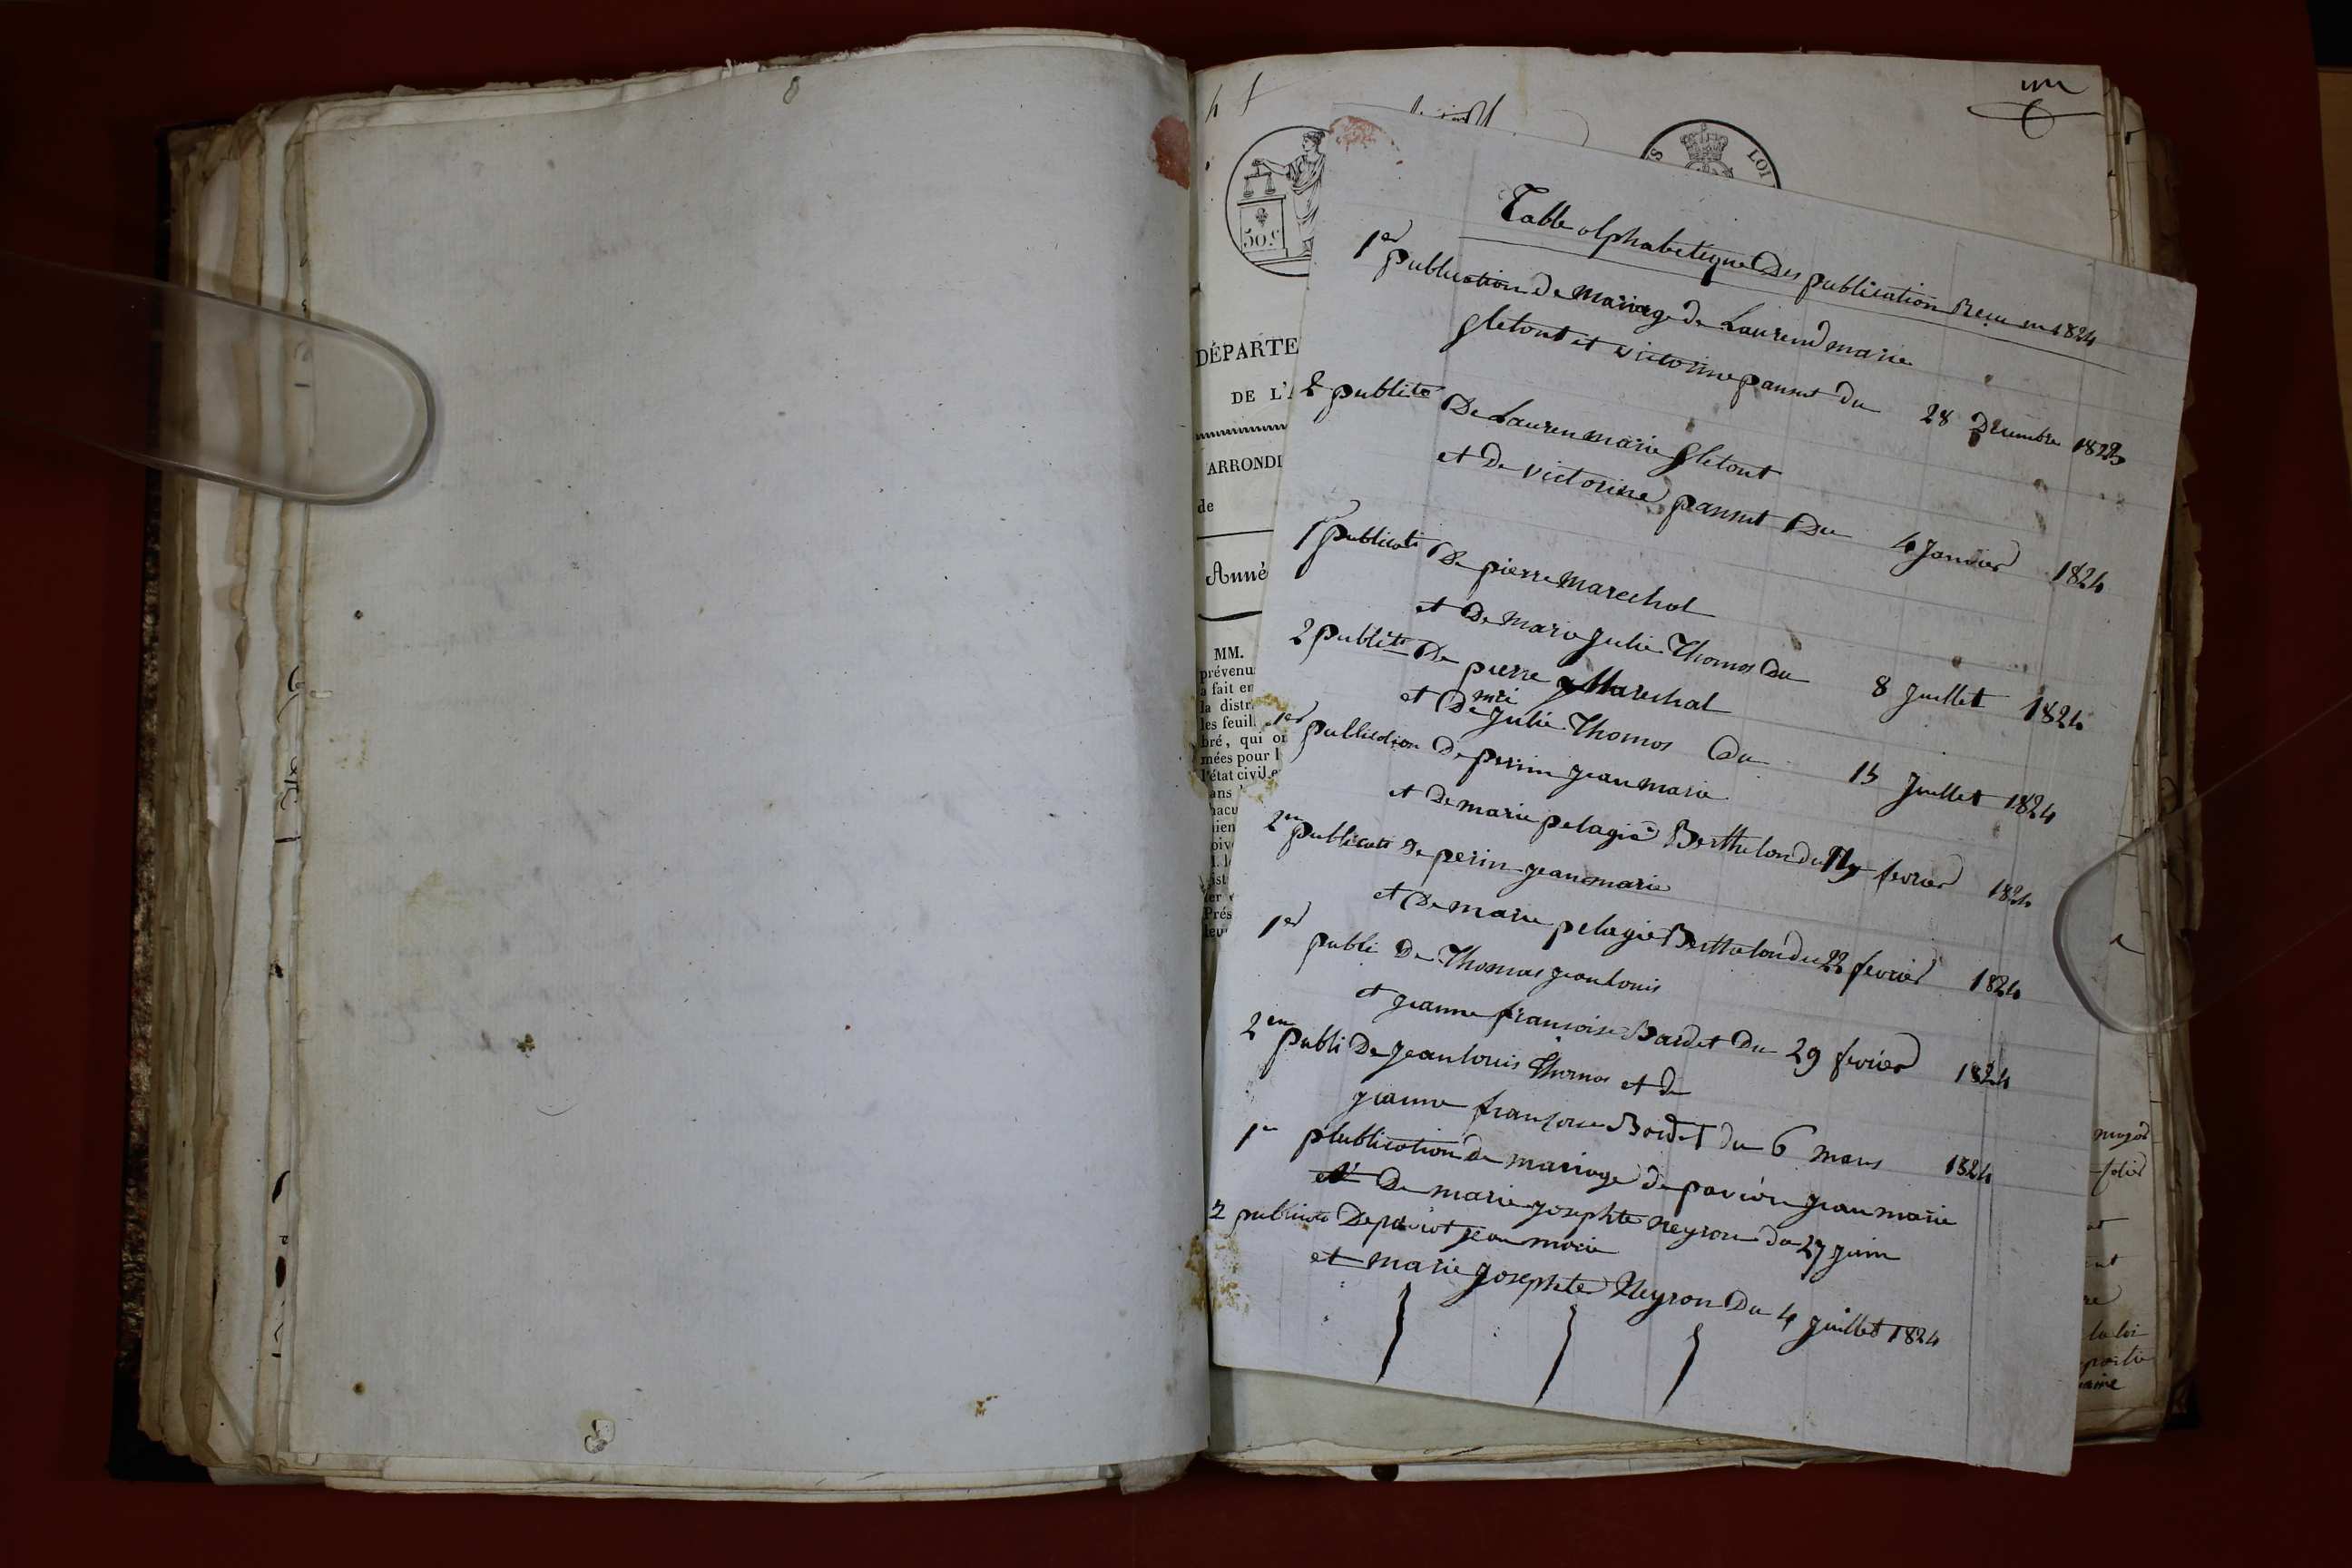 un
S LOI
50 c
DÉPARTE
DE L'A
ARRONDI
de
Anné
MM.
prévenu
a fait en
la distr
les feuil
bré, qui on
mées pour l
l'état civil e
ans
hacu
ien
oiv
Prés
leur
Table alphabetique Des publication Reçu en 1824
1er publication De Mariage de Laurend marie
gletout et victorine pansut du 28 Decembre 1823
2 publite De Lauren marie gletout
et De victorine pansut Du 4 Janvier 1824
1er publicati De pierre Marechal
et De Marie Julie Thomas Du 8 Juillet 1824
2 publite De pierre Marechal
et De mrie Julie Thomas Du 15 Juillet 1824
1er publication De perrin jean marie
et De marie pelagie Berthelon du fevrier 1824
2em publicati De perin jean marie
et De marie pelagie Berthelon du 22 fevrier 1824
1er publi De Thomas jean louis
et jeanne francoise Bardet Du 29 fevrier 1824
2em publi De jean louis Thomas et de
jeanne francoise Bardet du 6 mars 1824
1er plublication de mariage de paviot jean marie
et De marie josephte neyron du 27 juin
2 publicati De paviot jean marie
et marie josephte Neyron Du 4 juillet 1824
la loi
partie